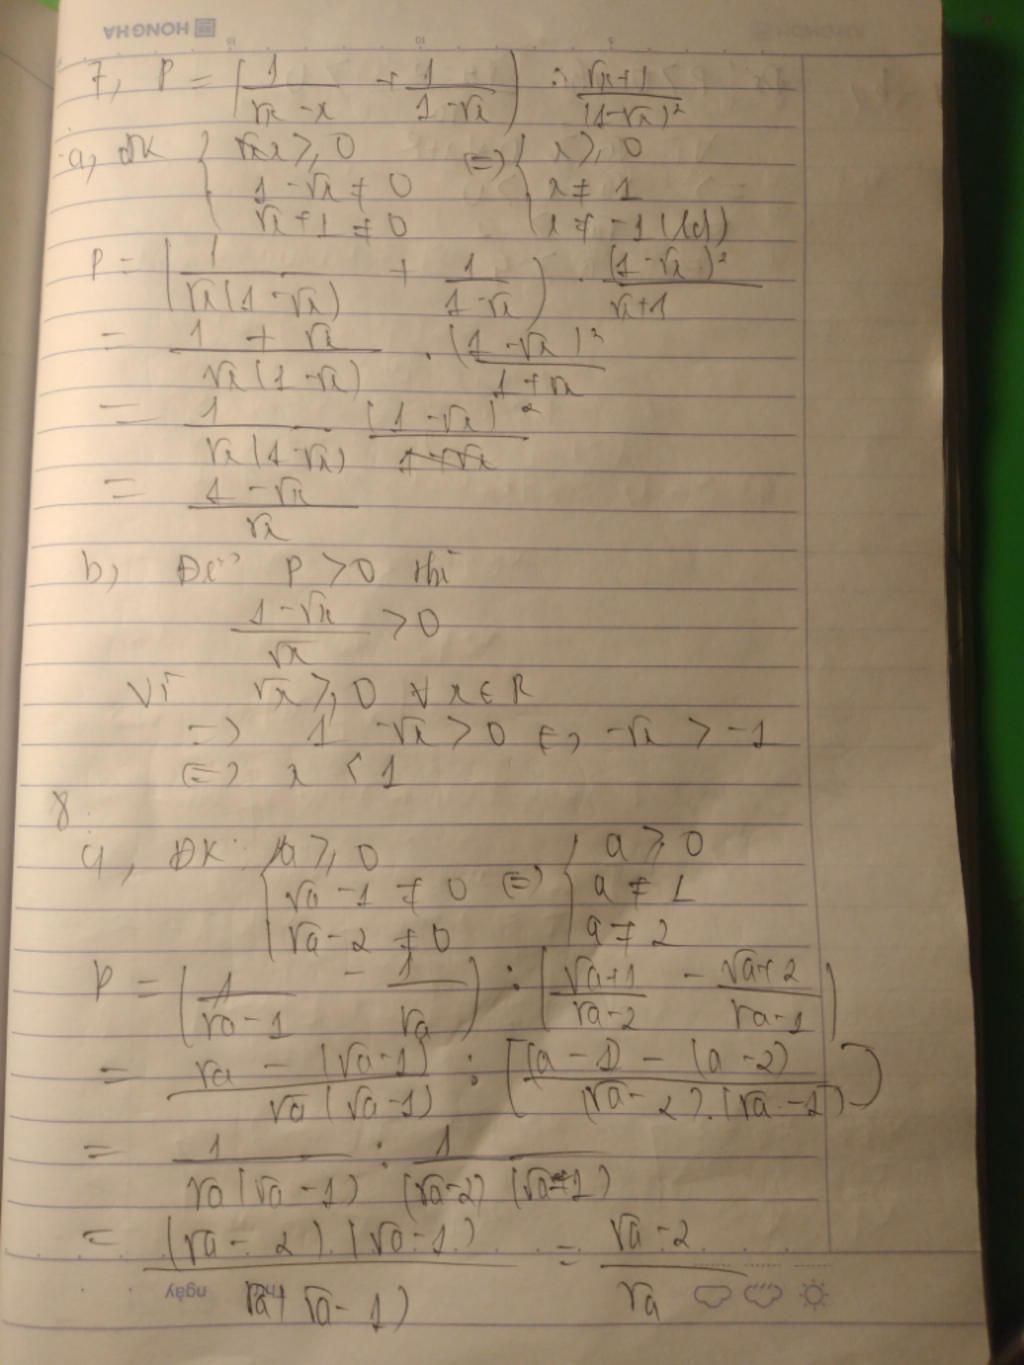 HONG HA
7, P = (1/(√x - x) + 1/(1-√x)) : (√x+1)/(1-√x)²
a, ĐK { √x ≥ 0 <=> { x ≥ 0
1 - √x ≠ 0 x ≠ 1
√x + 1 ≠ 0 x ≠ -1 (lđ)
P = (1/(√x(1-√x)) + 1/(1-√x)) . (1-√x)²/(√x+1)
= (1 + √x)/(√x(1-√x)) . (1-√x)²/(1+√x)
= 1/(√x(1-√x)) (1-√x)²/(1+√x)
= (1-√x)/√x
b, Để P > 0 thì
(1-√x)/√x > 0
Vì √x ≥ 0 ∀ x ∈ R
=> 1 - √x > 0 <=> -√x > -1
<=> x < 1
8.
a, ĐK: { a ≥ 0 { a ≥ 0
√a - 1 ≠ 0 <=> a ≠ 1
√a - 2 ≠ 0 a ≠ 2
P = (1/(√a-1) - 1/√a) : ((√a+1)/(√a-2) - (√a+2)/(√a-1))
= (√a - (√a-1))/(√a(√a-1)) : [((a-1) - (a-2))/((√a-2).(√a-1))]
= 1/(√a(√a-1)) : 1/((√a-2)(√a-1))
= (√a-2).(√a-1)/(√a(√a-1)) = (√a-2)/√a
ngày